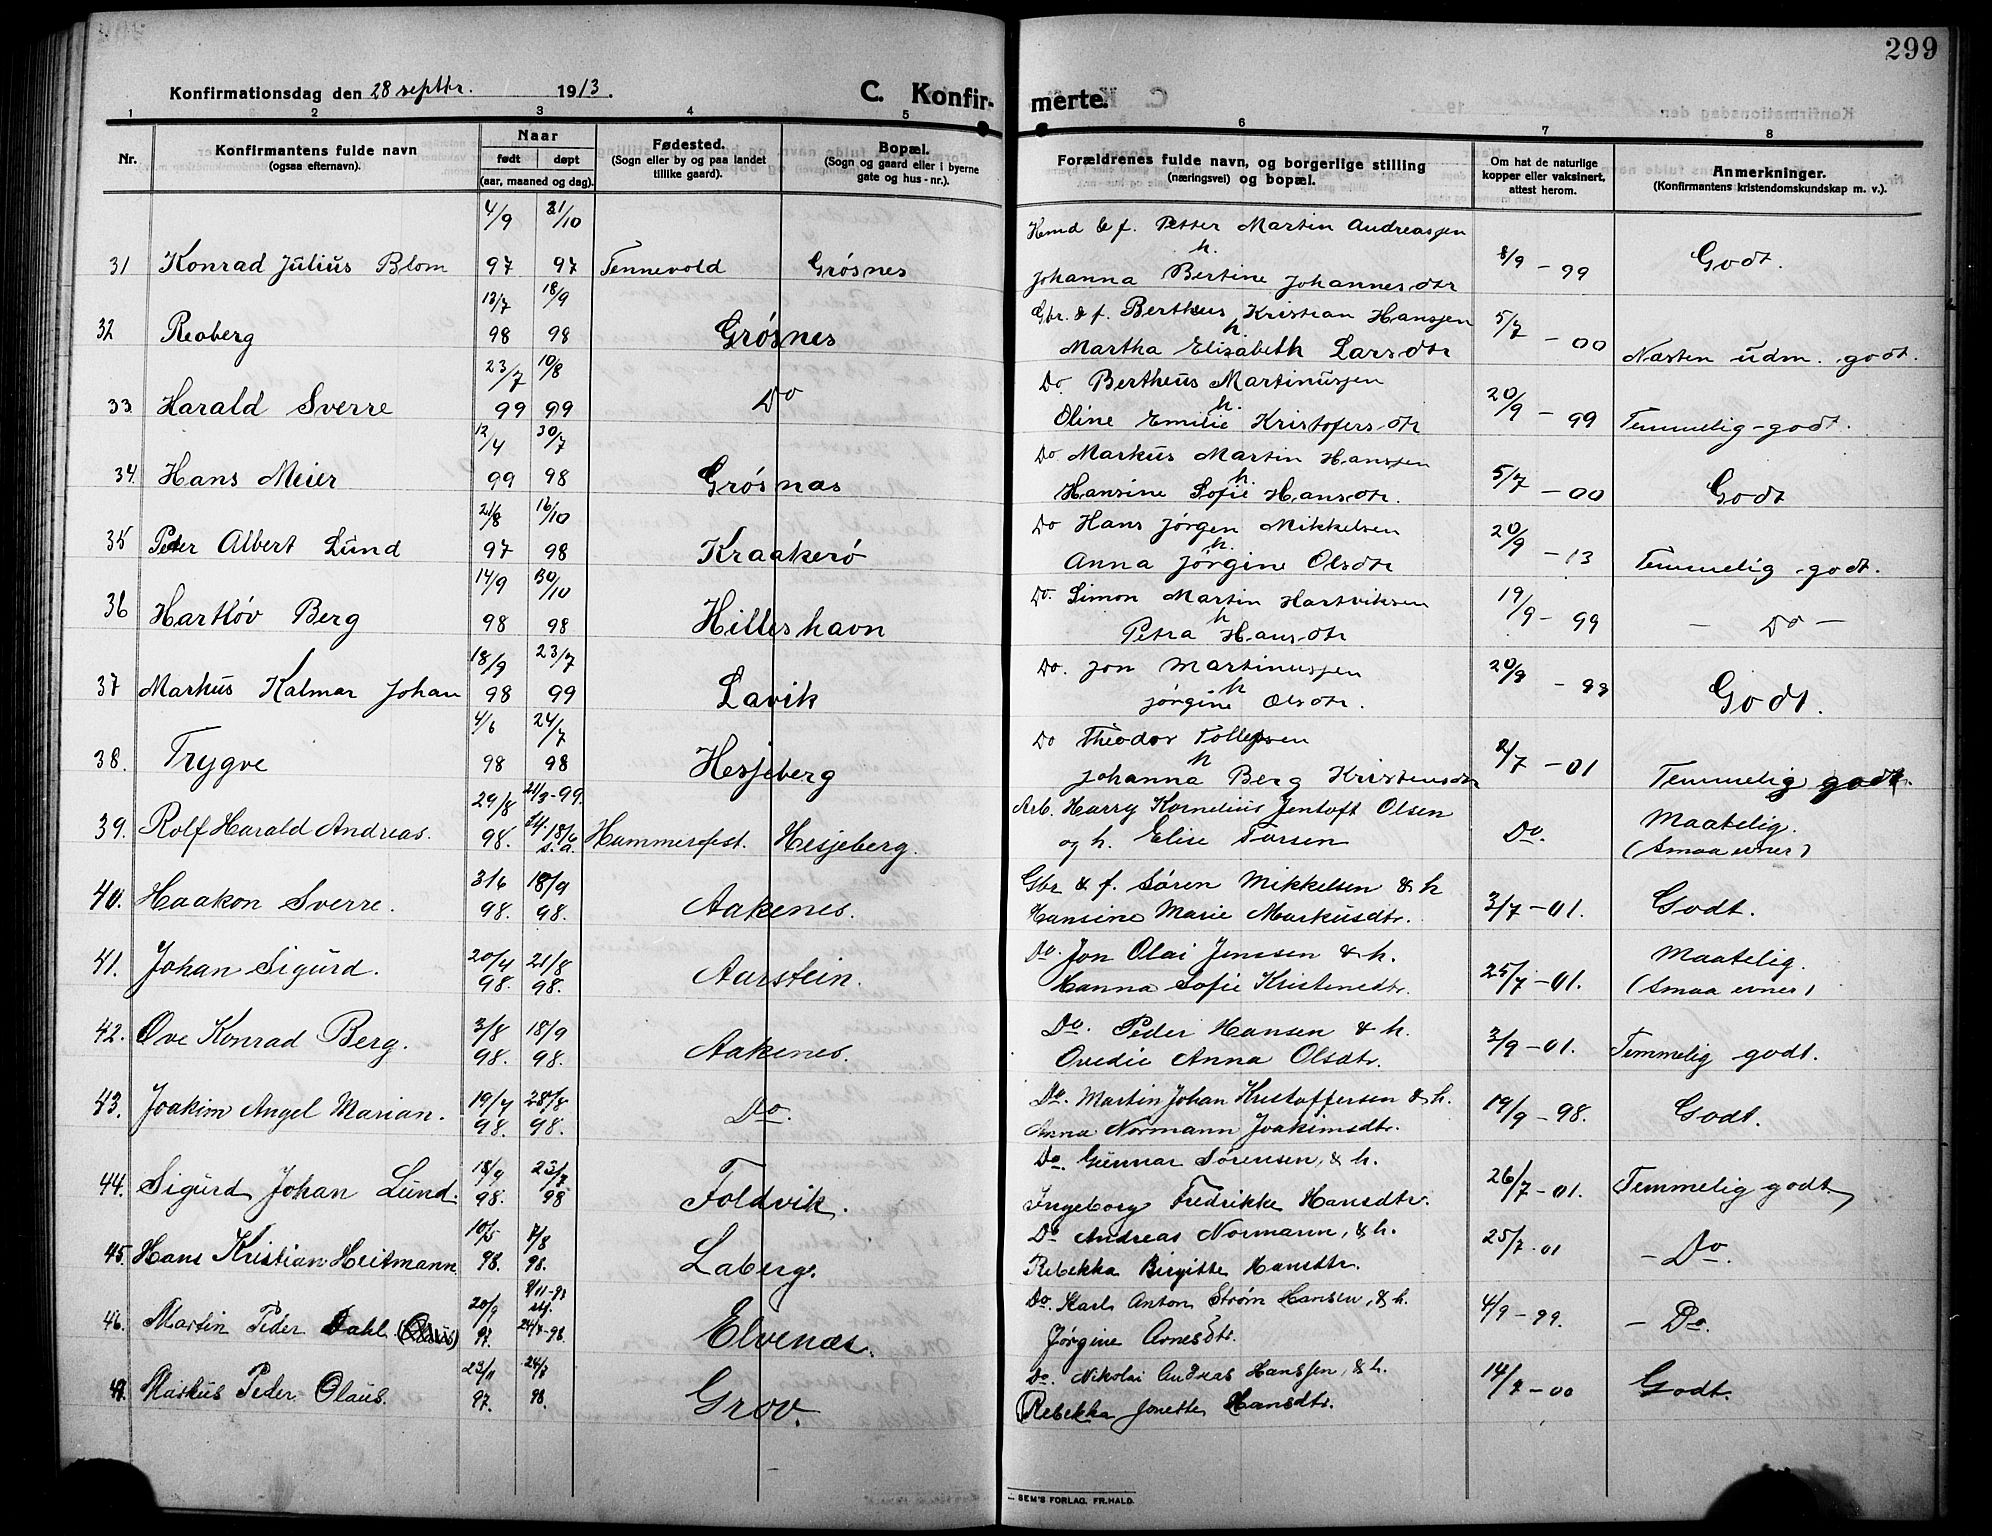 299
Konfirmationsdag den 28 septbr. 1913.
C. Konfir-
merte.
1 2 3 4 5 6 7 8
Nr.
Konfirmantens fulde navn
(ogsaa efternavn).
Naar
født døpt
(aar, maaned og dag).
Fødested.
(Sogn eller by og paa landet
tillike gaard).
Bopæl.
(Sogn og gaard eller i byerne
gate og hus-nr.).
Forældrenes fulde navn, og borgerlige stilling
(næringsvei) og bopæl.
Om hat de naturlige
kopper eller vaksinert,
attest herom.
Anmerkninger.
(Konfirmantens kristendomskundskap m. v.).
4/9 21/10 Petter Martin Andreasjen
31 Konrad Julius Blom 97 97 Tennevold Grøsnes h. 8/9 - 99 Godt.
Johanna Bertine Johannesdtr
13/7 18/9 Gbr. & f. Bertheus Kristian Hansjen
32 Reoberg 98 98 Grøsnes h. 5/7 - 00
Martha Elisabeth Larsdtr Næsten udm. godt.
23/7 10/8 Do Bertheus Martinusjen
33. Harald Sverre 99 99 Do h. 20/9 - 99
Oline Emilie Kristofersdtr Temmelig-godt.
12/4 30/7 Do Markus Martin Hansjen
34. Hans Meier 99 98 Grøsnæs h. 5/7 - 00 Godt
Hansine Sofie Hansdtr.
21/8 16/10 Do Hans Jørgen Mikkelsen
35 Peder Albert Lund 97 98 Kraakerø h. 20/9 - 13
Anna Jørgine Olsdtr Temmelig godt.
14/9 30/10 Do. Simon Martin Hartviksen
36 Hartløv Berg 98 98 Hilleshavn h 19/9 - 99 - Do -
Petra Hansdtr
18/9 23/7 Do. Jon Martinusjen
37 Markus Kalmar Johan 98 99 Lavik h 20/9 - 99 Godt.
Jørgine Olsdtr.
4/6 24/7 Do Theodor Tollefsen
38. Trygve 98 98 Hesjeberg h 2/7 - 01
Johanna Berg Kristensdtr Temmelig godt.
29/8 21/3-99. Arb. Harry Kornelius Jentoft Olsen
39. Rolf Harald Andreas. 98. 18/6 s.a. Hammerfest. Hesjeberg. Do. Maatelig.
og h. Elise Larsen (Smaa evner)
3/6 18/9 Gbr & f. Søren Mikkelsen & h
40. Haakon Sverre. 98. 98. Aakenes. 3/7 - 01. Godt.
Hansine Marie Markusdtr.
20/4 21/8 Do. Jon Olai Jenssen & h. Maatelig.
41. Johan Sigurd. 98. 98. Aarstein. 25/7 - 01.
Hanna Sofie Kristensdtr. (Smaa evner)
3/8 18/9 Do. Peder Hansen & h.
42. Ove Konrad Berg. 98. 98. Aakenes. 3/9 - 01. Temmelig godt.
Ovedie Anna Olsdtr.
19/7 28/8 Do. Martin Johan Kristoffersen & h.
43. Joakim Angel Marian. 98. 98. Do. 19/9 - 98. Godt.
Anna Normann Joakimsdtr.
18/9 23/7 Do. Gunnar Sørensen, & h.
44. Sigurd Johan Lund. 98. 98 Foldvik. 26/7 - 01. Temmelig godt.
Ingeborg Fredrikke Hansdtr.
10/5 7/8 Do Andreas Normann, & h.
45. Hans Kristian Heitmann. 98. 98. Laberg. 25/7 - 01 - Do.
Rebekka Birgitte Hansdtr.
20/9 Do. Karl Anton Strøm Hansen, & h.
46. Martin Peder Dahl. 97. 24/7-98. Elvenæs. 4/9 - 99. - Do.
Jørgine Arnesdtr.
23/11 24/7 Do. Nikolai Andreas Hansjen, & h.
47. Markus Peder Olaus. 97. 98. Grov. 14/7 - 00 Godt.
Rebekka Jonette Hansdtr.
SEM'S FORLAG, FR.HALD.